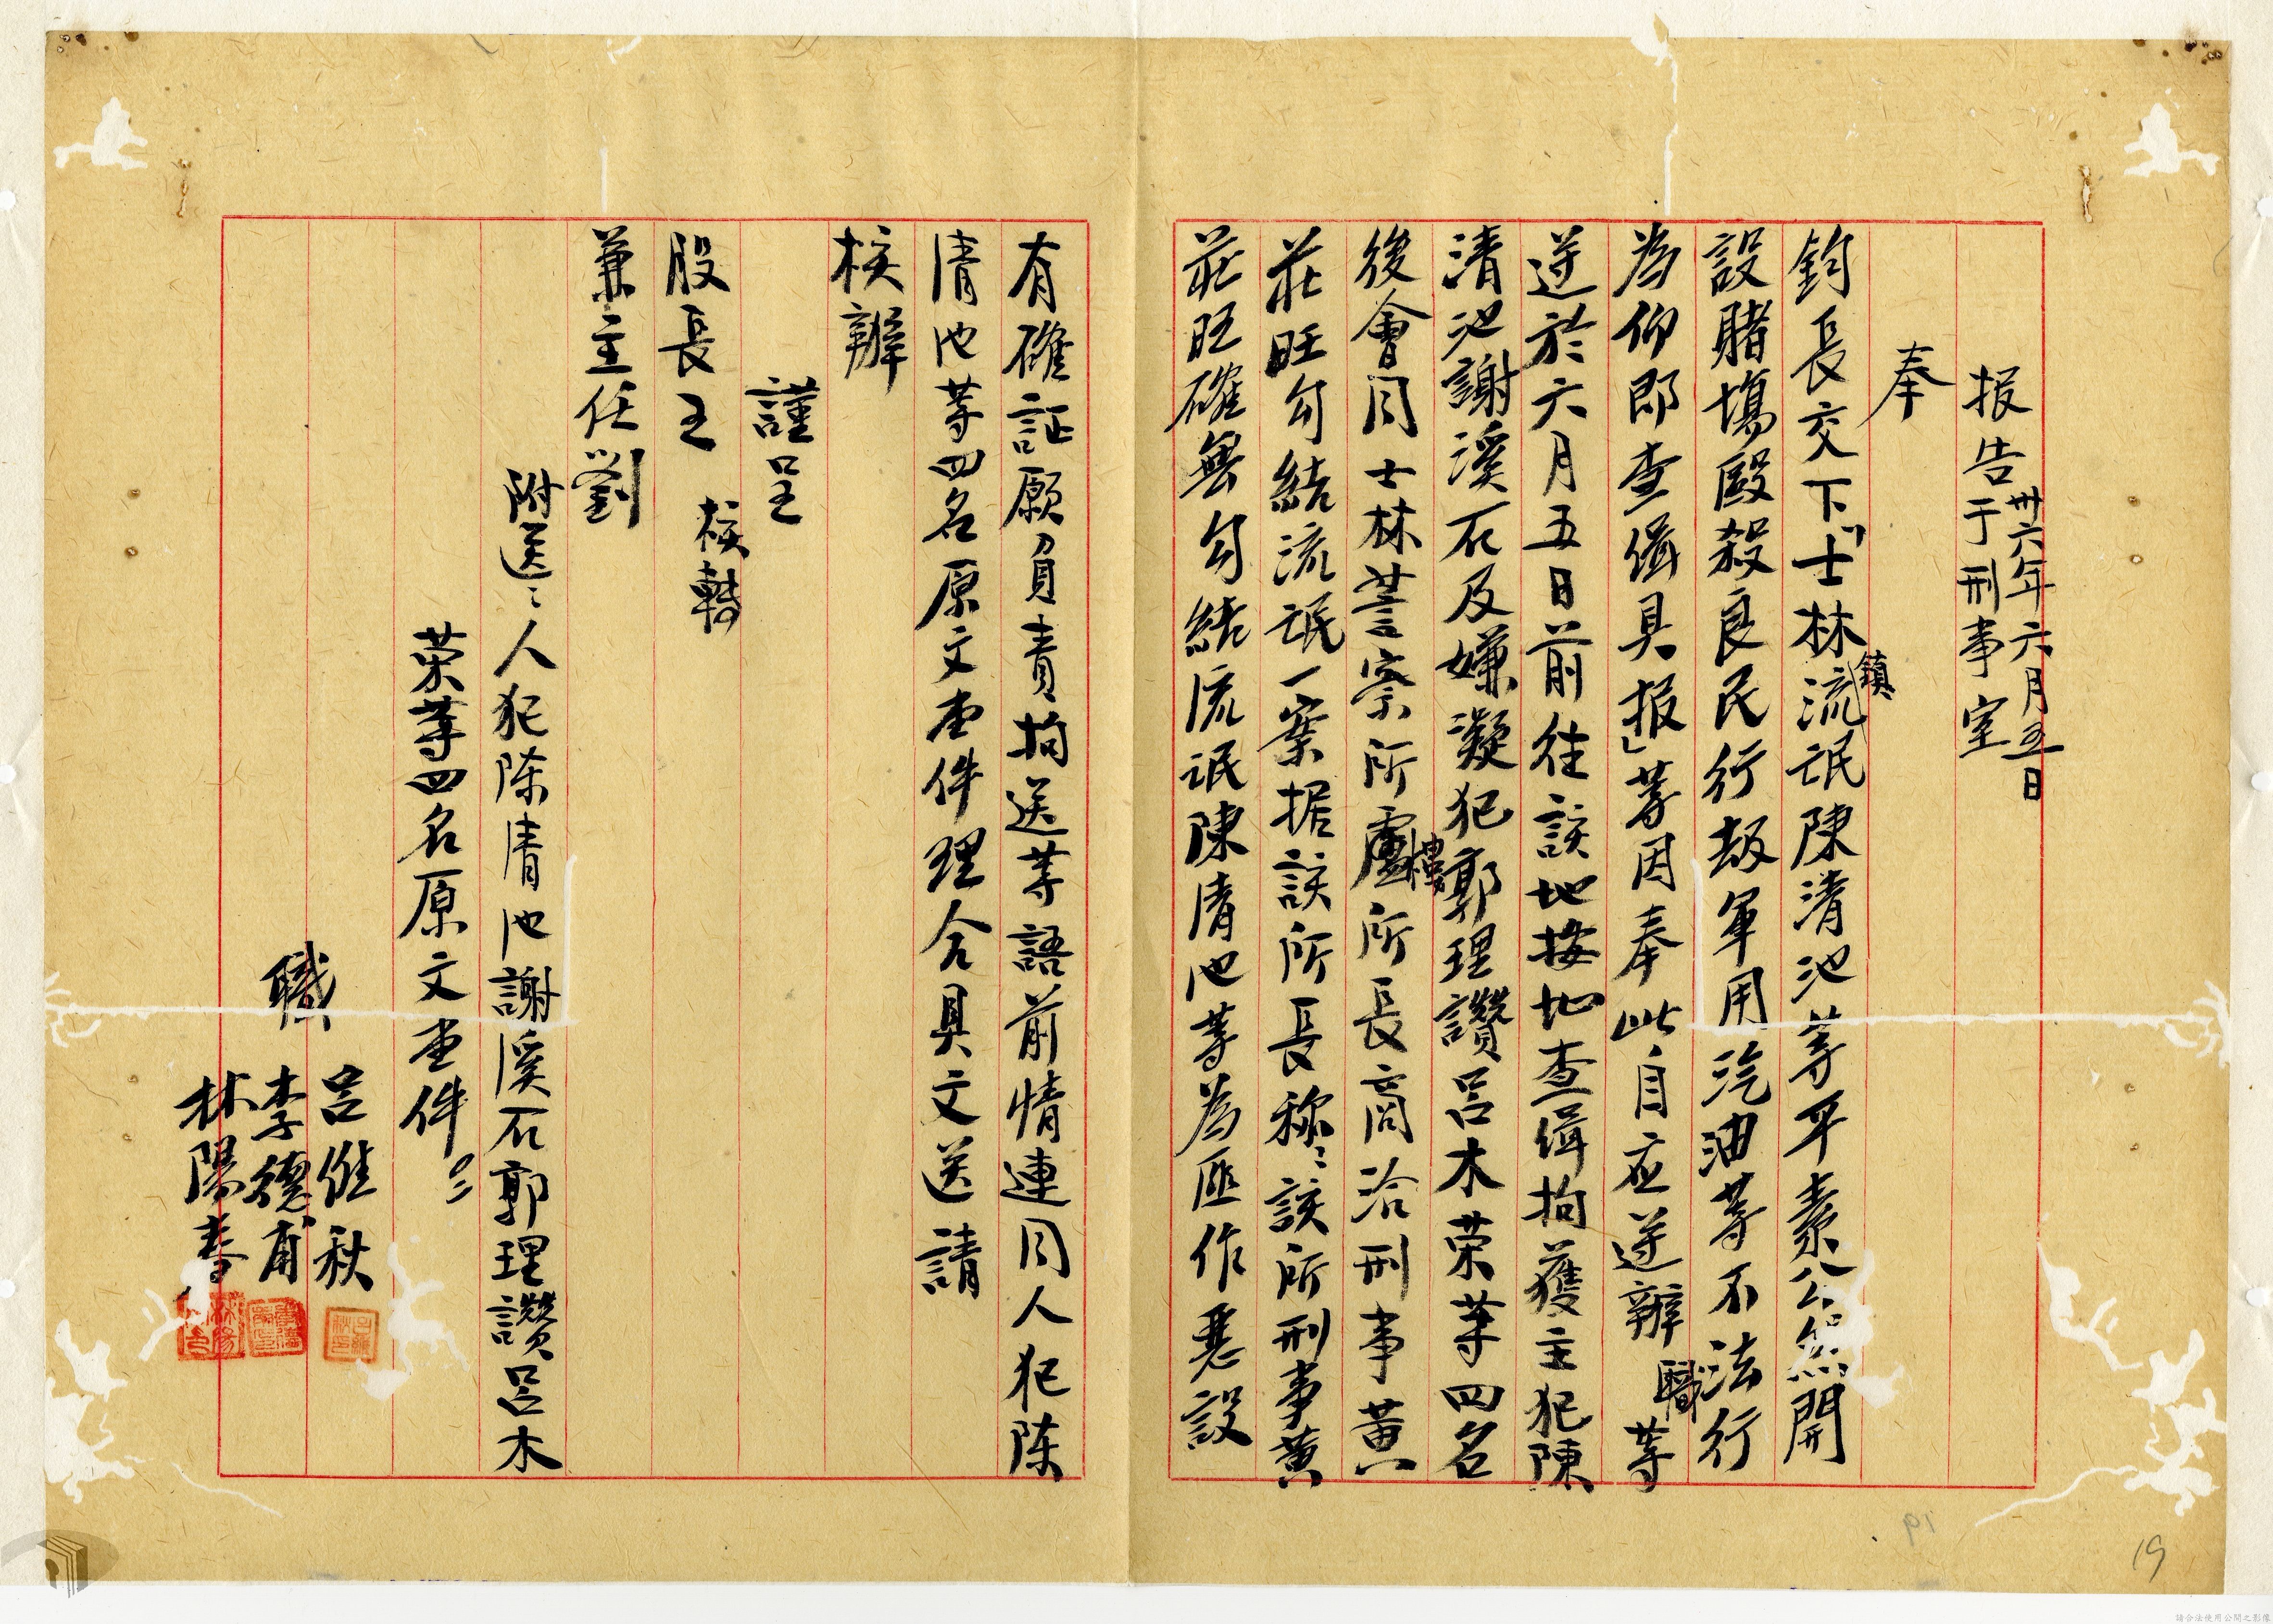 報告 卅六年六月五日于刑事室
奉
鈞長交下「士林鎮流氓陳清池等平素公然開
設賭場毆殺良民行劫軍用汽油等不法行
為仰即查緝具报」等因奉此自应遵辦職等
遵於六月五日前往該地按址查緝拘獲主犯陳
清池謝溪石及嫌凝犯郭理讚呂木荣等四名
後會同士林警察所盧樓所長商洽刑事黄
莊旺勾結流氓一案据該所長称:該所刑事黄
莊旺確無勾结流氓陳清池等為匪作惡設
有確証願負責拘送等語前情連同人犯陈
清池等四名原文壹件理合具文送請
核辦
謹呈
股長王 核轉
兼主任劉
附送:人犯陈清池謝溪石郭理讚呂木
荣等四名原文壹件
職 呂維秋
李德甫
林陽春
19
請合法使用公開之影像